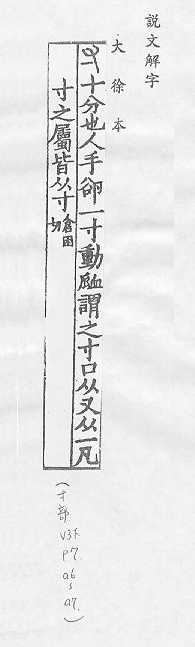 説文解字
大徐本
寸十分也人手卻一寸動䘑謂之寸口从又从一凡
寸之屬皆从寸倉困切
(寸部 V3下 P7. a6 ~ a7.)